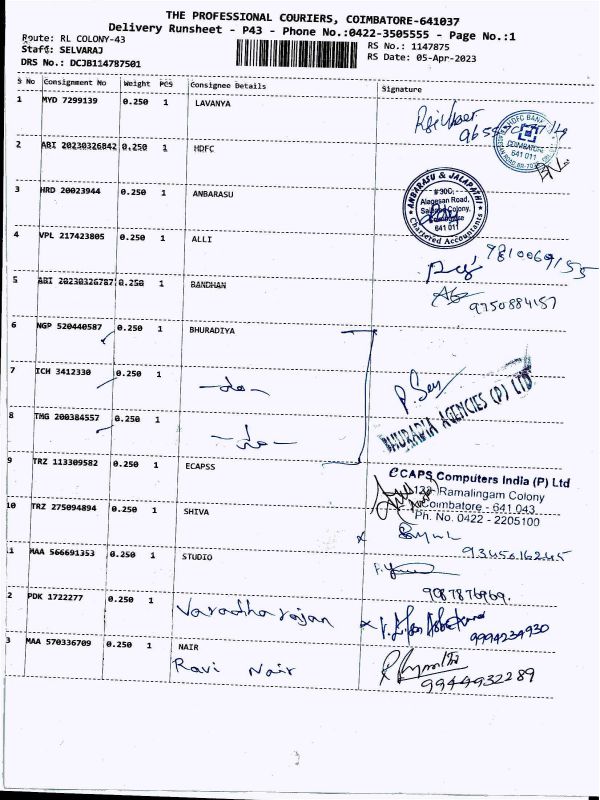 THE PROFESSIONAL COURIERS, COIMBATORE-641037
Delivery Runsheet - P43 - Phone No.:0422-3505555 - Page No.:1
Route: RL COLONY-43
RS No.: 1147875
Staff: SELVARAJ
RS Date: 05-Apr-2023
DRS No.: DCJB114787501
S No Consignment No Weight PCS Consignee Details Signature
1 MYD 7299139 0.250 1 LAVANYA
HDFC BANK
COIMBATORE
641 011
2 ABI 20230326842 0.250 1 HDFC
3 HRD 20023944 0.250 1 ANBARASU
ANBARASU & JALAPATHI
# 30C,
Alagesan Road,
Colony,
641 011
Chartered Accountants
4 VPL 217423805 0.250 1 ALLI
9810069155
5 ABI 20230326787 0.250 1 BANDHAN
9750884157
6 NGP 520440587 0.250 1 BHURADIYA
7 ICH 3412330 0.250 1 -do-
8 TMG 200384557 0.250 1 -do-
BHURADIA AGENCIES (P) LTD
9 TRZ 113309582 0.250 1 ECAPSS
CCAPS Computers India (P) Ltd
132, Ramalingam Colony
Coimbatore - 641 043
Ph. No. 0422 - 2205100
10 TRZ 275094894 0.250 1 SHIVA
9345616245
1 MAA 566691353 0.250 1 STUDIO
9087876969.
2 PDK 1722277 0.250 1 Varadharajan
9994234930
3 MAA 570336709 0.250 1 NAIR
Ravi Nair
9944932289